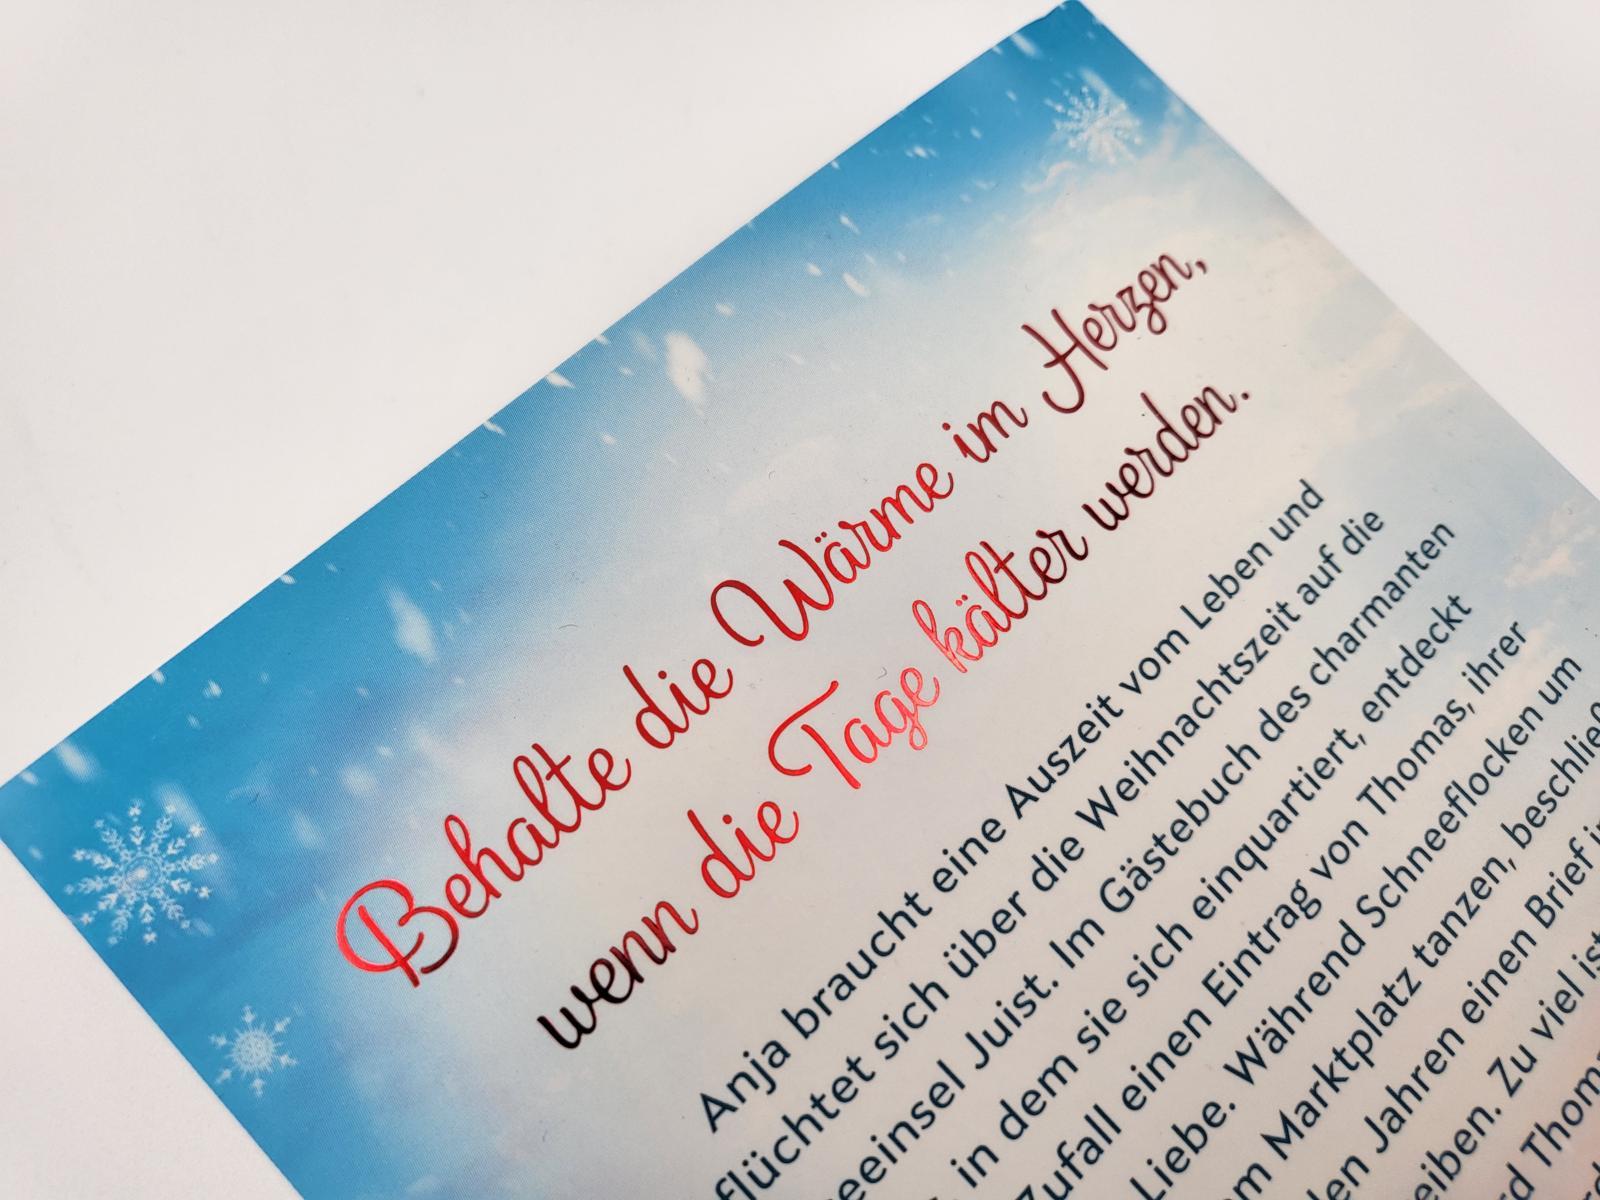 Behalte die Wärme im Herzen,
wenn die Tage kälter werden.
Anja braucht eine Auszeit vom Leben und
flüchtet sich über die Weihnachtszeit auf die
Juist. Im Gästebuch des charmanten
in dem sie sich einquartiert, entdeckt
einen Eintrag von Thomas, ihrer
Liebe. Während Schneeflocken um
Marktplatz tanzen,
Jahren einen Brief
Zu viel